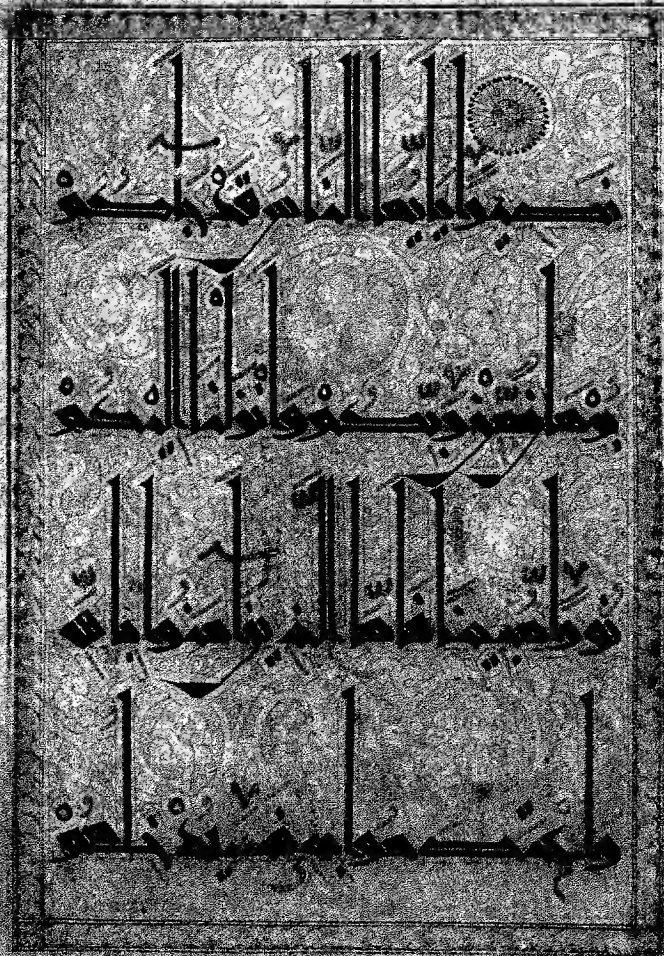 نصيرا يايها الناس قد جاكم
برهان من ربكم وانزلنا اليكم
نورا مبينا فاما الذين امنوا بالله
واعتصموا به فسيدخلهم